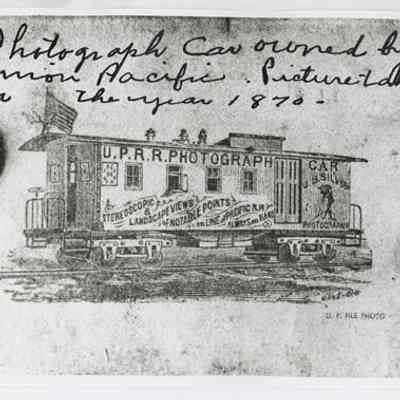 Photograph Car owned b
nion Pacific. Picture ta
the year 1870-
U.P.R.R. PHOTOGRAPH CAR
STEREOSCOPIC
& LANDSCAPE VIEWS
OF NOTABLE POINTS
ON LINE OF PACIFIC R.R.
ALWAYS ON HAND
PHOTOGRAPH
U. P. FILE PHOTO